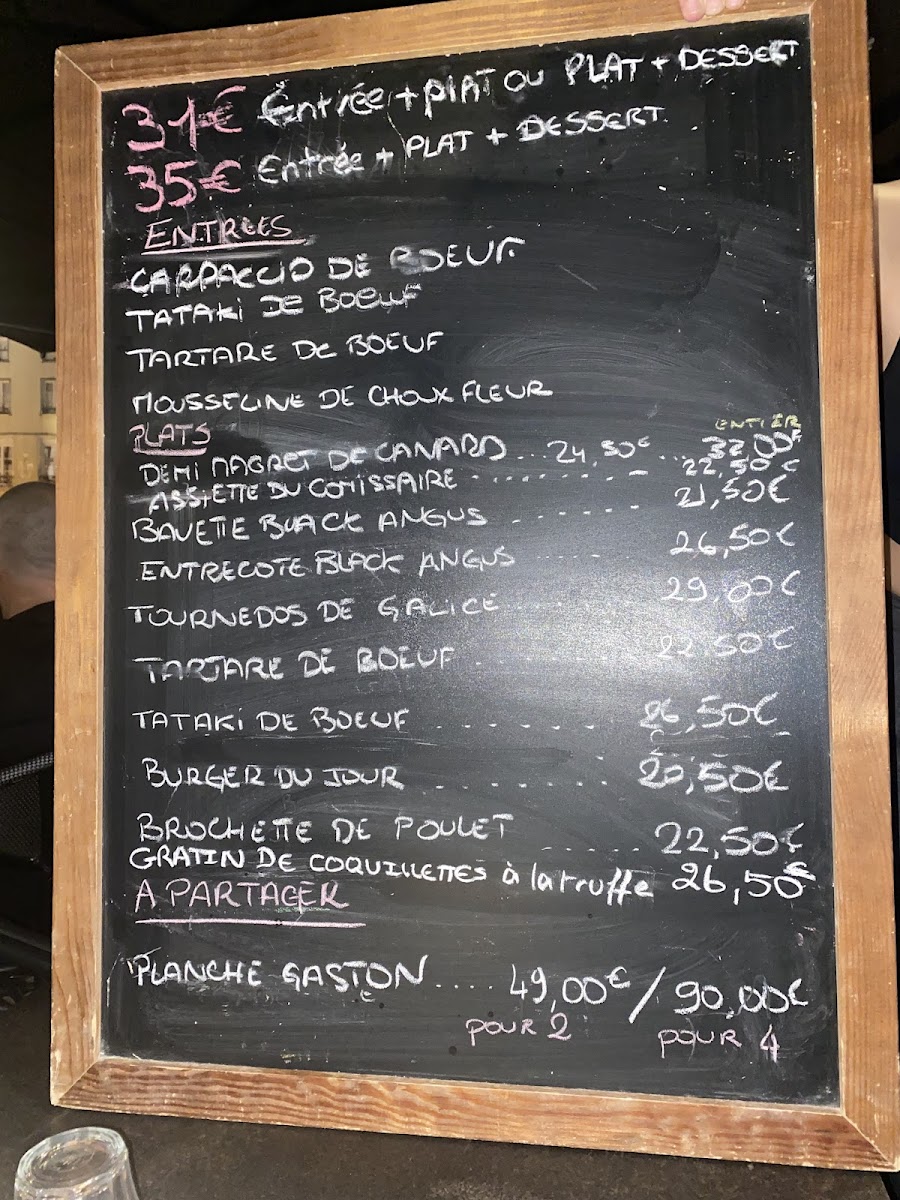 31€ Entrée + PLAT OU PLAT + DESSERT
35€ Entrée + PLAT + DESSERT
ENTREES
CARPACCIO DE BOEUF
TATAKI DE BOEUF
TARTARE DE BOEUF
MOUSSELINE DE CHOUX FLEUR
PLATS
ENTIER
DEMI MAGRET DE CANARD ... 24,50€ ... 32,00€
ASSIETTE DU COMISSAIRE ......... 22,50€
BAVETTE BLACK ANGUS ....... 21,50€
ENTRECOTE BLACK ANGUS ....... 26,50€
TOURNEDOS DE GALICE ....... 29,00€
TARTARE DE BOEUF ....... 22,50€
TATAKI DE BOEUF ....... 26,50€
BURGER DU JOUR ....... 20,50€
BROCHETTE DE POULET ...... 22,50€
GRATIN DE COQUILLETTES à la truffe 26,50€
A PARTAGER
PLANCHE GASTON .... 49,00€ / 90,00€
POUR 2 POUR 4